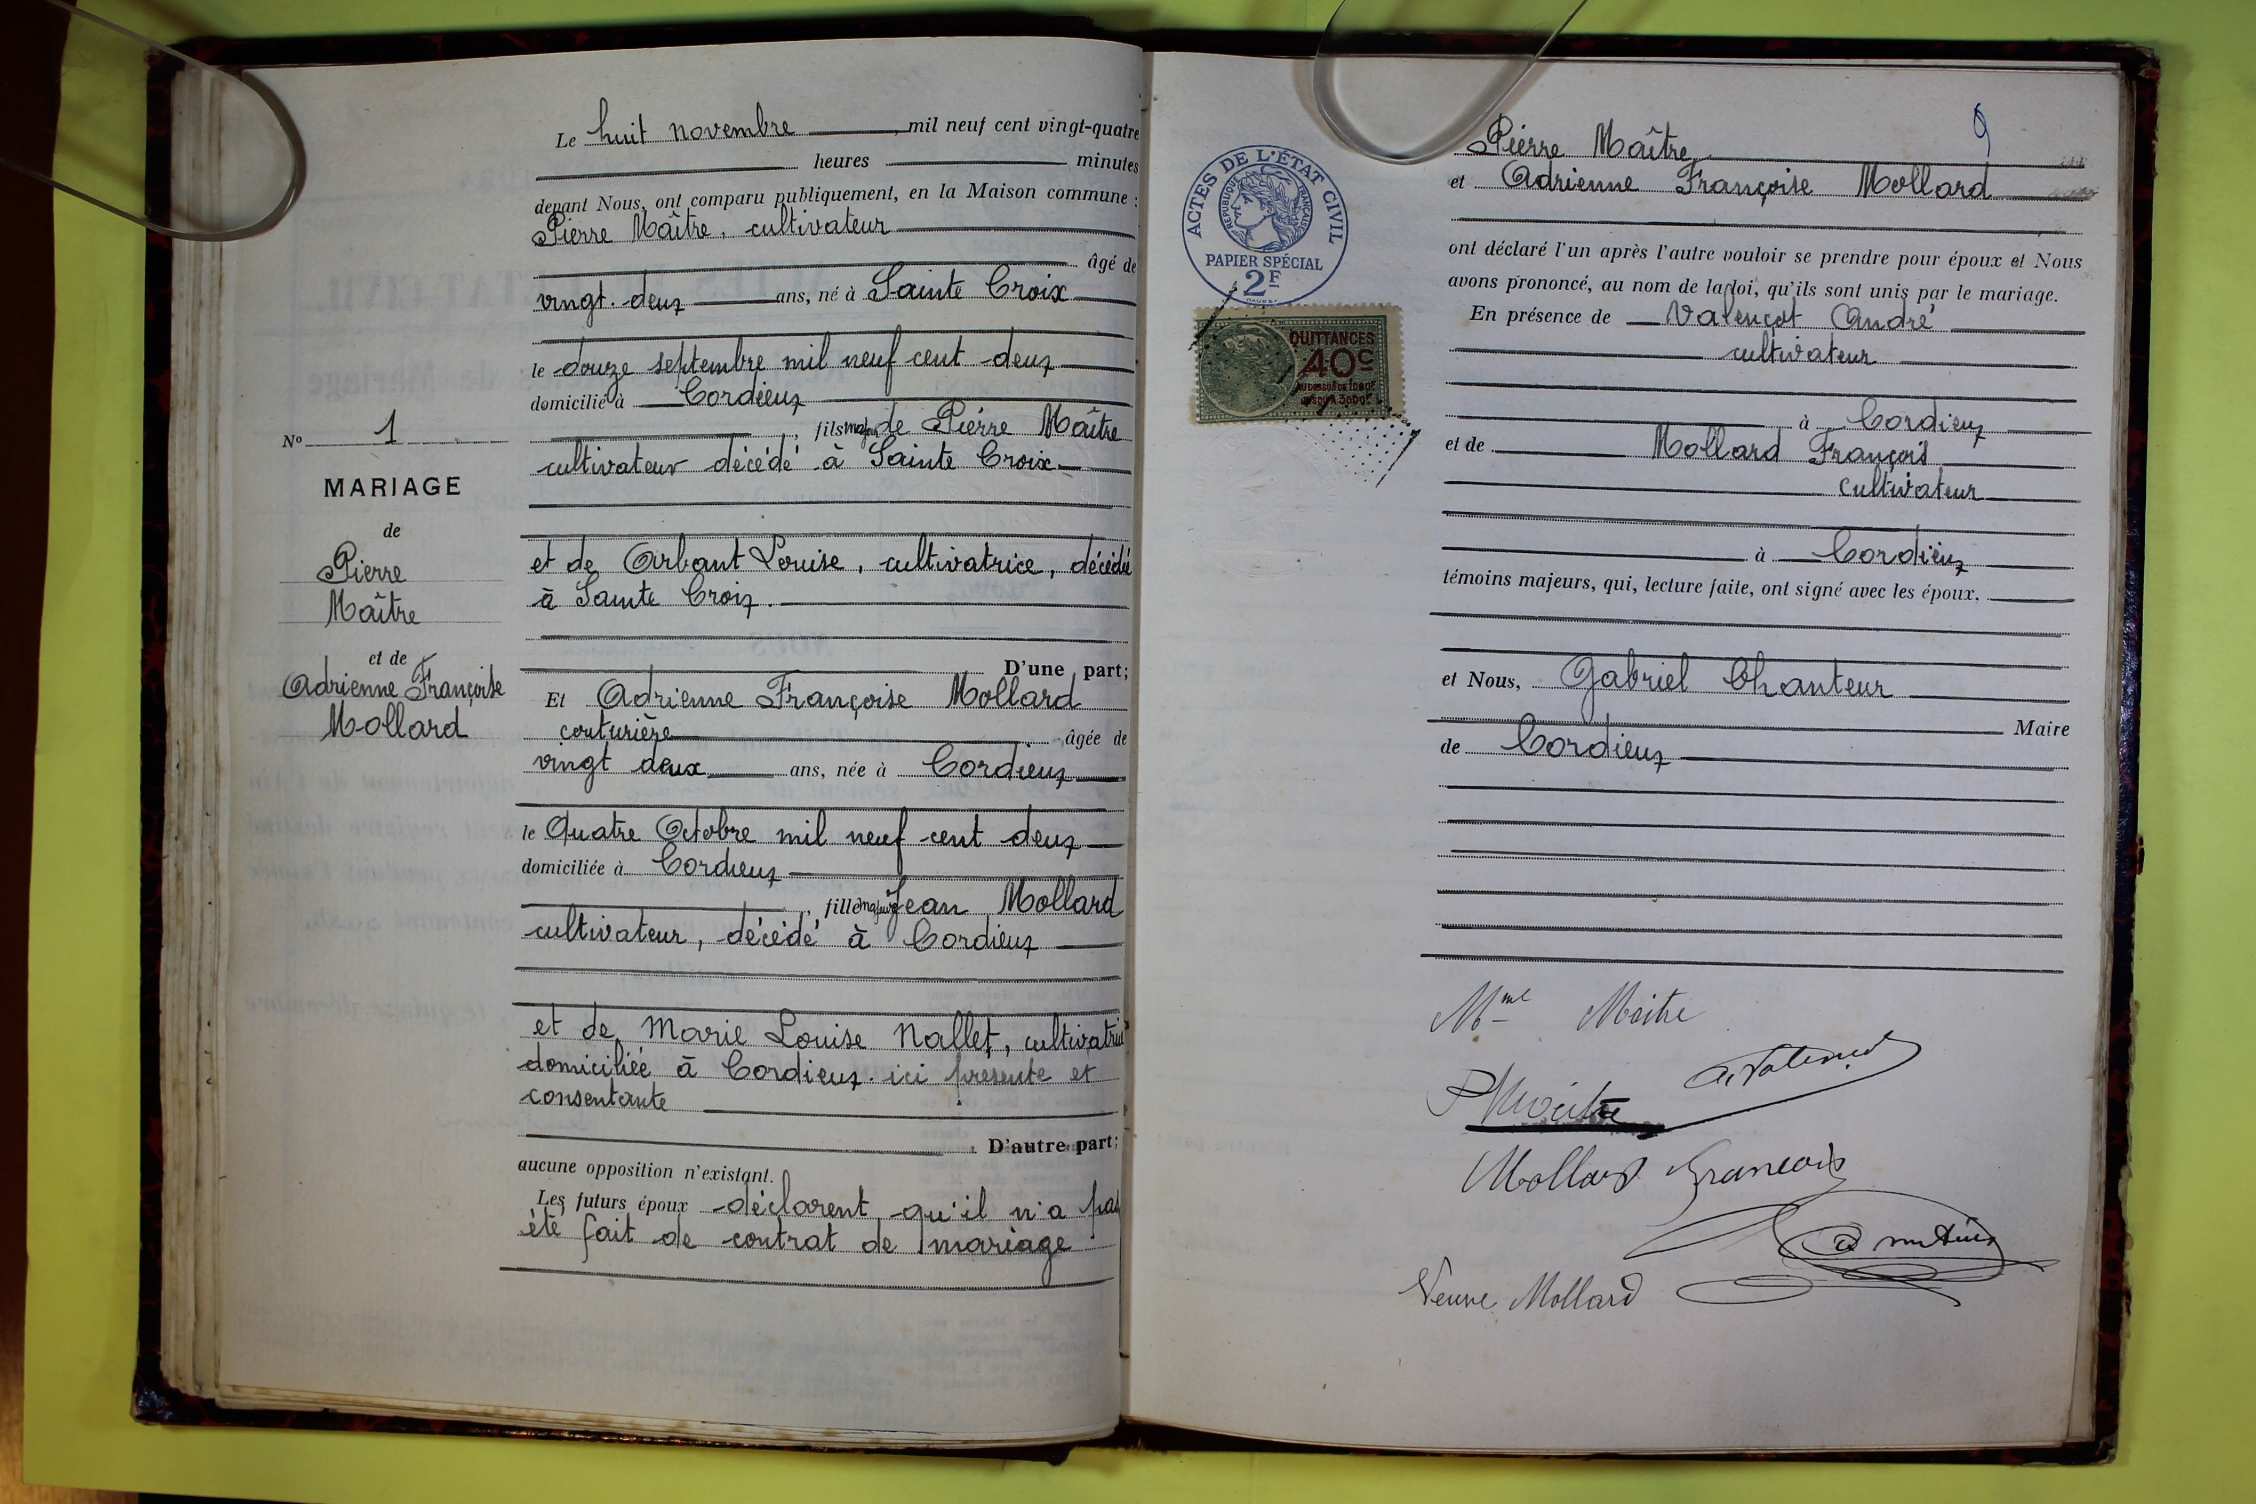 Le huit novembre mil neuf cent vingt-quatre
heures minutes
devant Nous, ont comparu publiquement, en la Maison commune :
Pierre Maître, cultivateur
âgé de
vingt-deux ans, né à Sainte Croix
le douze septembre mil neuf cent deux
domicilié à Cordieux
, fils majeur de Pierre Maître
cultivateur décédé à Sainte Croix
et de Arbant Louise, cultivatrice, décédée
à Sainte Croix.
D'une part;
Et Adrienne Françoise Mollard
couturière âgée de
vingt deux ans, née à Cordieux
le Quatre Octobre mil neuf cent deux
domiciliée à Cordieux
, fille majeure Jean Mollard
cultivateur, décédé à Cordieux
et de Marie Louise Nallet, cultivatrice
domiciliée à Cordieux. ici présente et
consentante
D'autre part;
aucune opposition n'existant.
Les futurs époux déclarent qu'il n'a pas
été fait de contrat de mariage
No 1
MARIAGE
de
Pierre
Maître
et de
Adrienne Françoise
Mollard
9
ACTES DE L'ÉTAT CIVIL
RÉPUBLIQUE FRANÇAISE
PAPIER SPÉCIAL
2F
QUITTANCES
40c
Pierre Maître
et Adrienne Françoise Mollard
ont déclaré l'un après l'autre vouloir se prendre pour époux et Nous
avons prononcé, au nom de la loi, qu'ils sont unis par le mariage.
En présence de Valençot André
cultivateur
à Cordieux
et de Mollard François
cultivateur
à Cordieux
témoins majeurs, qui, lecture faite, ont signé avec les époux.
et Nous, Gabriel Chanteur
Maire
de Cordieux
Mme Maitre
P Maître
Mollard Francois
Veuve Mollard